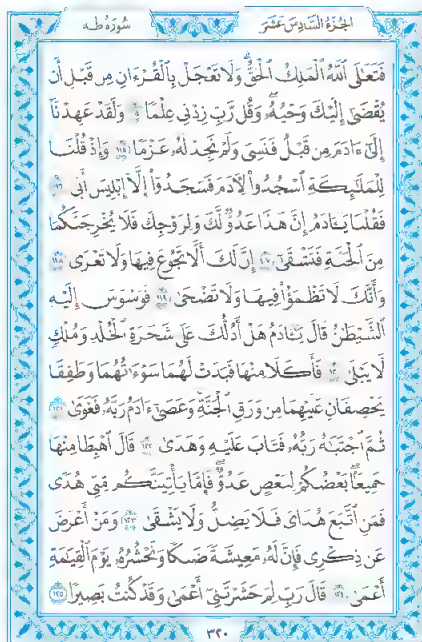 الجزء السادس عشر
سورة طه
فَتَعَٰلَى ٱللَّهُ ٱلْمَلِكُ ٱلْحَقُّ وَلَا تَعْجَلْ بِٱلْقُرْءَانِ مِن قَبْلِ أَن
يُقْضَىٰٓ إِلَيْكَ وَحْيُهُۥ وَقُل رَّبِّ زِدْنِى عِلْمًا ١١٤ وَلَقَدْ عَهِدْنَآ
إِلَىٰٓ ءَادَمَ مِن قَبْلُ فَنَسِىَ وَلَمْ نَجِدْ لَهُۥ عَزْمًا ١١٥ وَإِذْ قُلْنَا
لِلْمَلَٰٓئِكَةِ ٱسْجُدُوا۟ لِءَادَمَ فَسَجَدُوٓا۟ إِلَّآ إِبْلِيسَ أَبَىٰ ١١٦
فَقُلْنَا يَٰٓـَٔادَمُ إِنَّ هَٰذَا عَدُوٌّ لَّكَ وَلِزَوْجِكَ فَلَا يُخْرِجَنَّكُمَا
مِنَ ٱلْجَنَّةِ فَتَشْقَىٰٓ ١١٧ إِنَّ لَكَ أَلَّا تَجُوعَ فِيهَا وَلَا تَعْرَىٰ ١١٨
وَأَنَّكَ لَا تَظْمَؤُا۟ فِيهَا وَلَا تَضْحَىٰ ١١٩ فَوَسْوَسَ إِلَيْهِ
ٱلشَّيْطَٰنُ قَالَ يَٰٓـَٔادَمُ هَلْ أَدُلُّكَ عَلَىٰ شَجَرَةِ ٱلْخُلْدِ وَمُلْكٍ
لَّا يَبْلَىٰ ١٢٠ فَأَكَلَا مِنْهَا فَبَدَتْ لَهُمَا سَوْءَٰتُهُمَا وَطَفِقَا
يَخْصِفَانِ عَلَيْهِمَا مِن وَرَقِ ٱلْجَنَّةِ وَعَصَىٰٓ ءَادَمُ رَبَّهُۥ فَغَوَىٰ ١٢١
ثُمَّ ٱجْتَبَٰهُ رَبُّهُۥ فَتَابَ عَلَيْهِ وَهَدَىٰ ١٢٢ قَالَ ٱهْبِطَا مِنْهَا
جَمِيعًۢا بَعْضُكُمْ لِبَعْضٍ عَدُوٌّ فَإِمَّا يَأْتِيَنَّكُم مِّنِّى هُدًى
فَمَنِ ٱتَّبَعَ هُدَاىَ فَلَا يَضِلُّ وَلَا يَشْقَىٰ ١٢٣ وَمَنْ أَعْرَضَ
عَن ذِكْرِى فَإِنَّ لَهُۥ مَعِيشَةً ضَنكًا وَنَحْشُرُهُۥ يَوْمَ ٱلْقِيَٰمَةِ
أَعْمَىٰ ١٢٤ قَالَ رَبِّ لِمَ حَشَرْتَنِىٓ أَعْمَىٰ وَقَدْ كُنتُ بَصِيرًا ١٢٥
٣٢٠